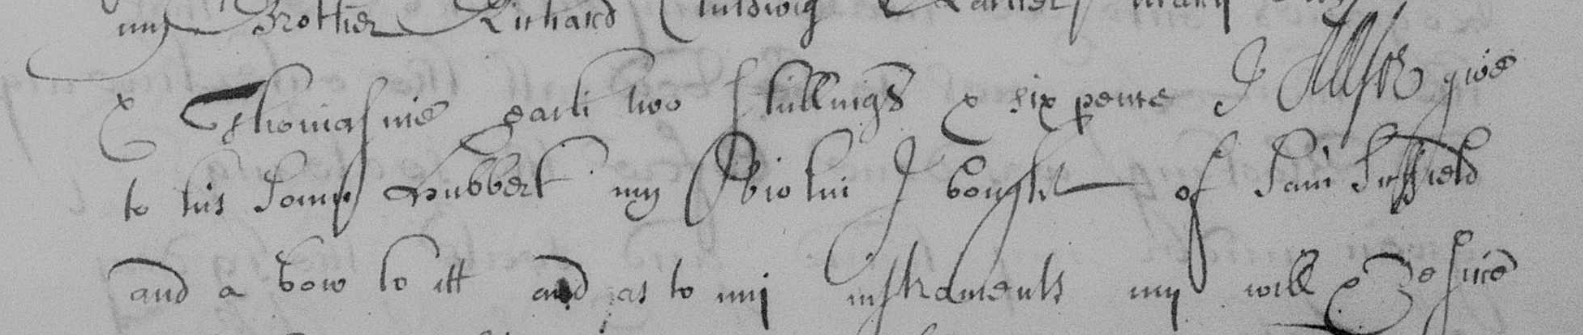 my Brother Richard
& Thomasine each two shillings & six pence I Allso give
to his Sonn Hubbert my violin I bought of Sam Suffield
and a bow to itt and as to my instraments my will & desire